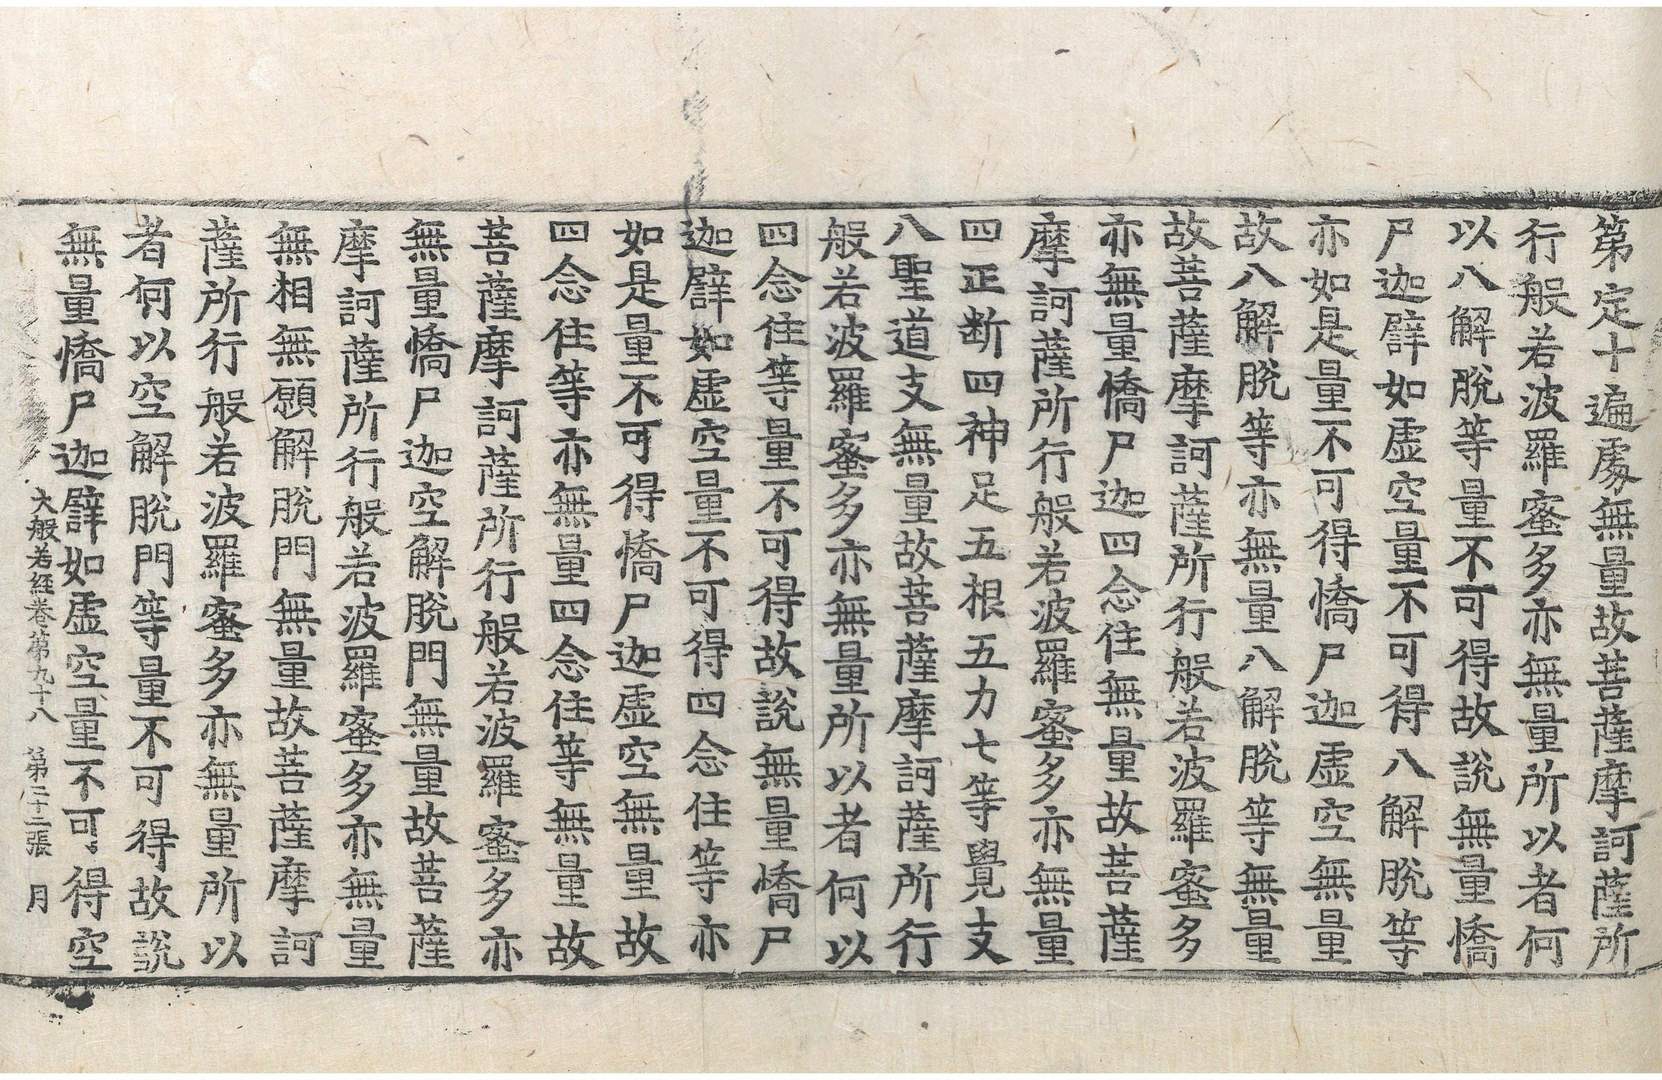 第定十遍處無量故菩薩摩訶薩所
行般若波羅蜜多亦無量所以者何
以八解脫等量不可得故說無量憍
尸迦譬如虛空量不可得八解脫等
亦如是量不可得憍尸迦虛空無量
故八解脫等亦無量八解脫等無量
故菩薩摩訶薩所行般若波羅蜜多
亦無量憍尸迦四念住無量故菩薩
摩訶薩所行般若波羅蜜多亦無量
四正断四神足五根五力七等覺支
八聖道支無量故菩薩摩訶薩所行
般若波羅蜜多亦無量所以者何以
四念住等量不可得故說無量憍尸
迦譬如虛空量不可得四念住等亦
如是量不可得憍尸迦虛空無量故
四念住等亦無量四念住等無量故
菩薩摩訶薩所行般若波羅蜜多亦
無量憍尸迦空解脫門無量故菩薩
摩訶薩所行般若波羅蜜多亦無量
無相無願解脫門無量故菩薩摩訶
薩所行般若波羅蜜多亦無量所以
者何以空解脫門等量不可得故說
無量憍尸迦譬如虛空量不可得空
大般若經卷第九十八 第二十二張 月